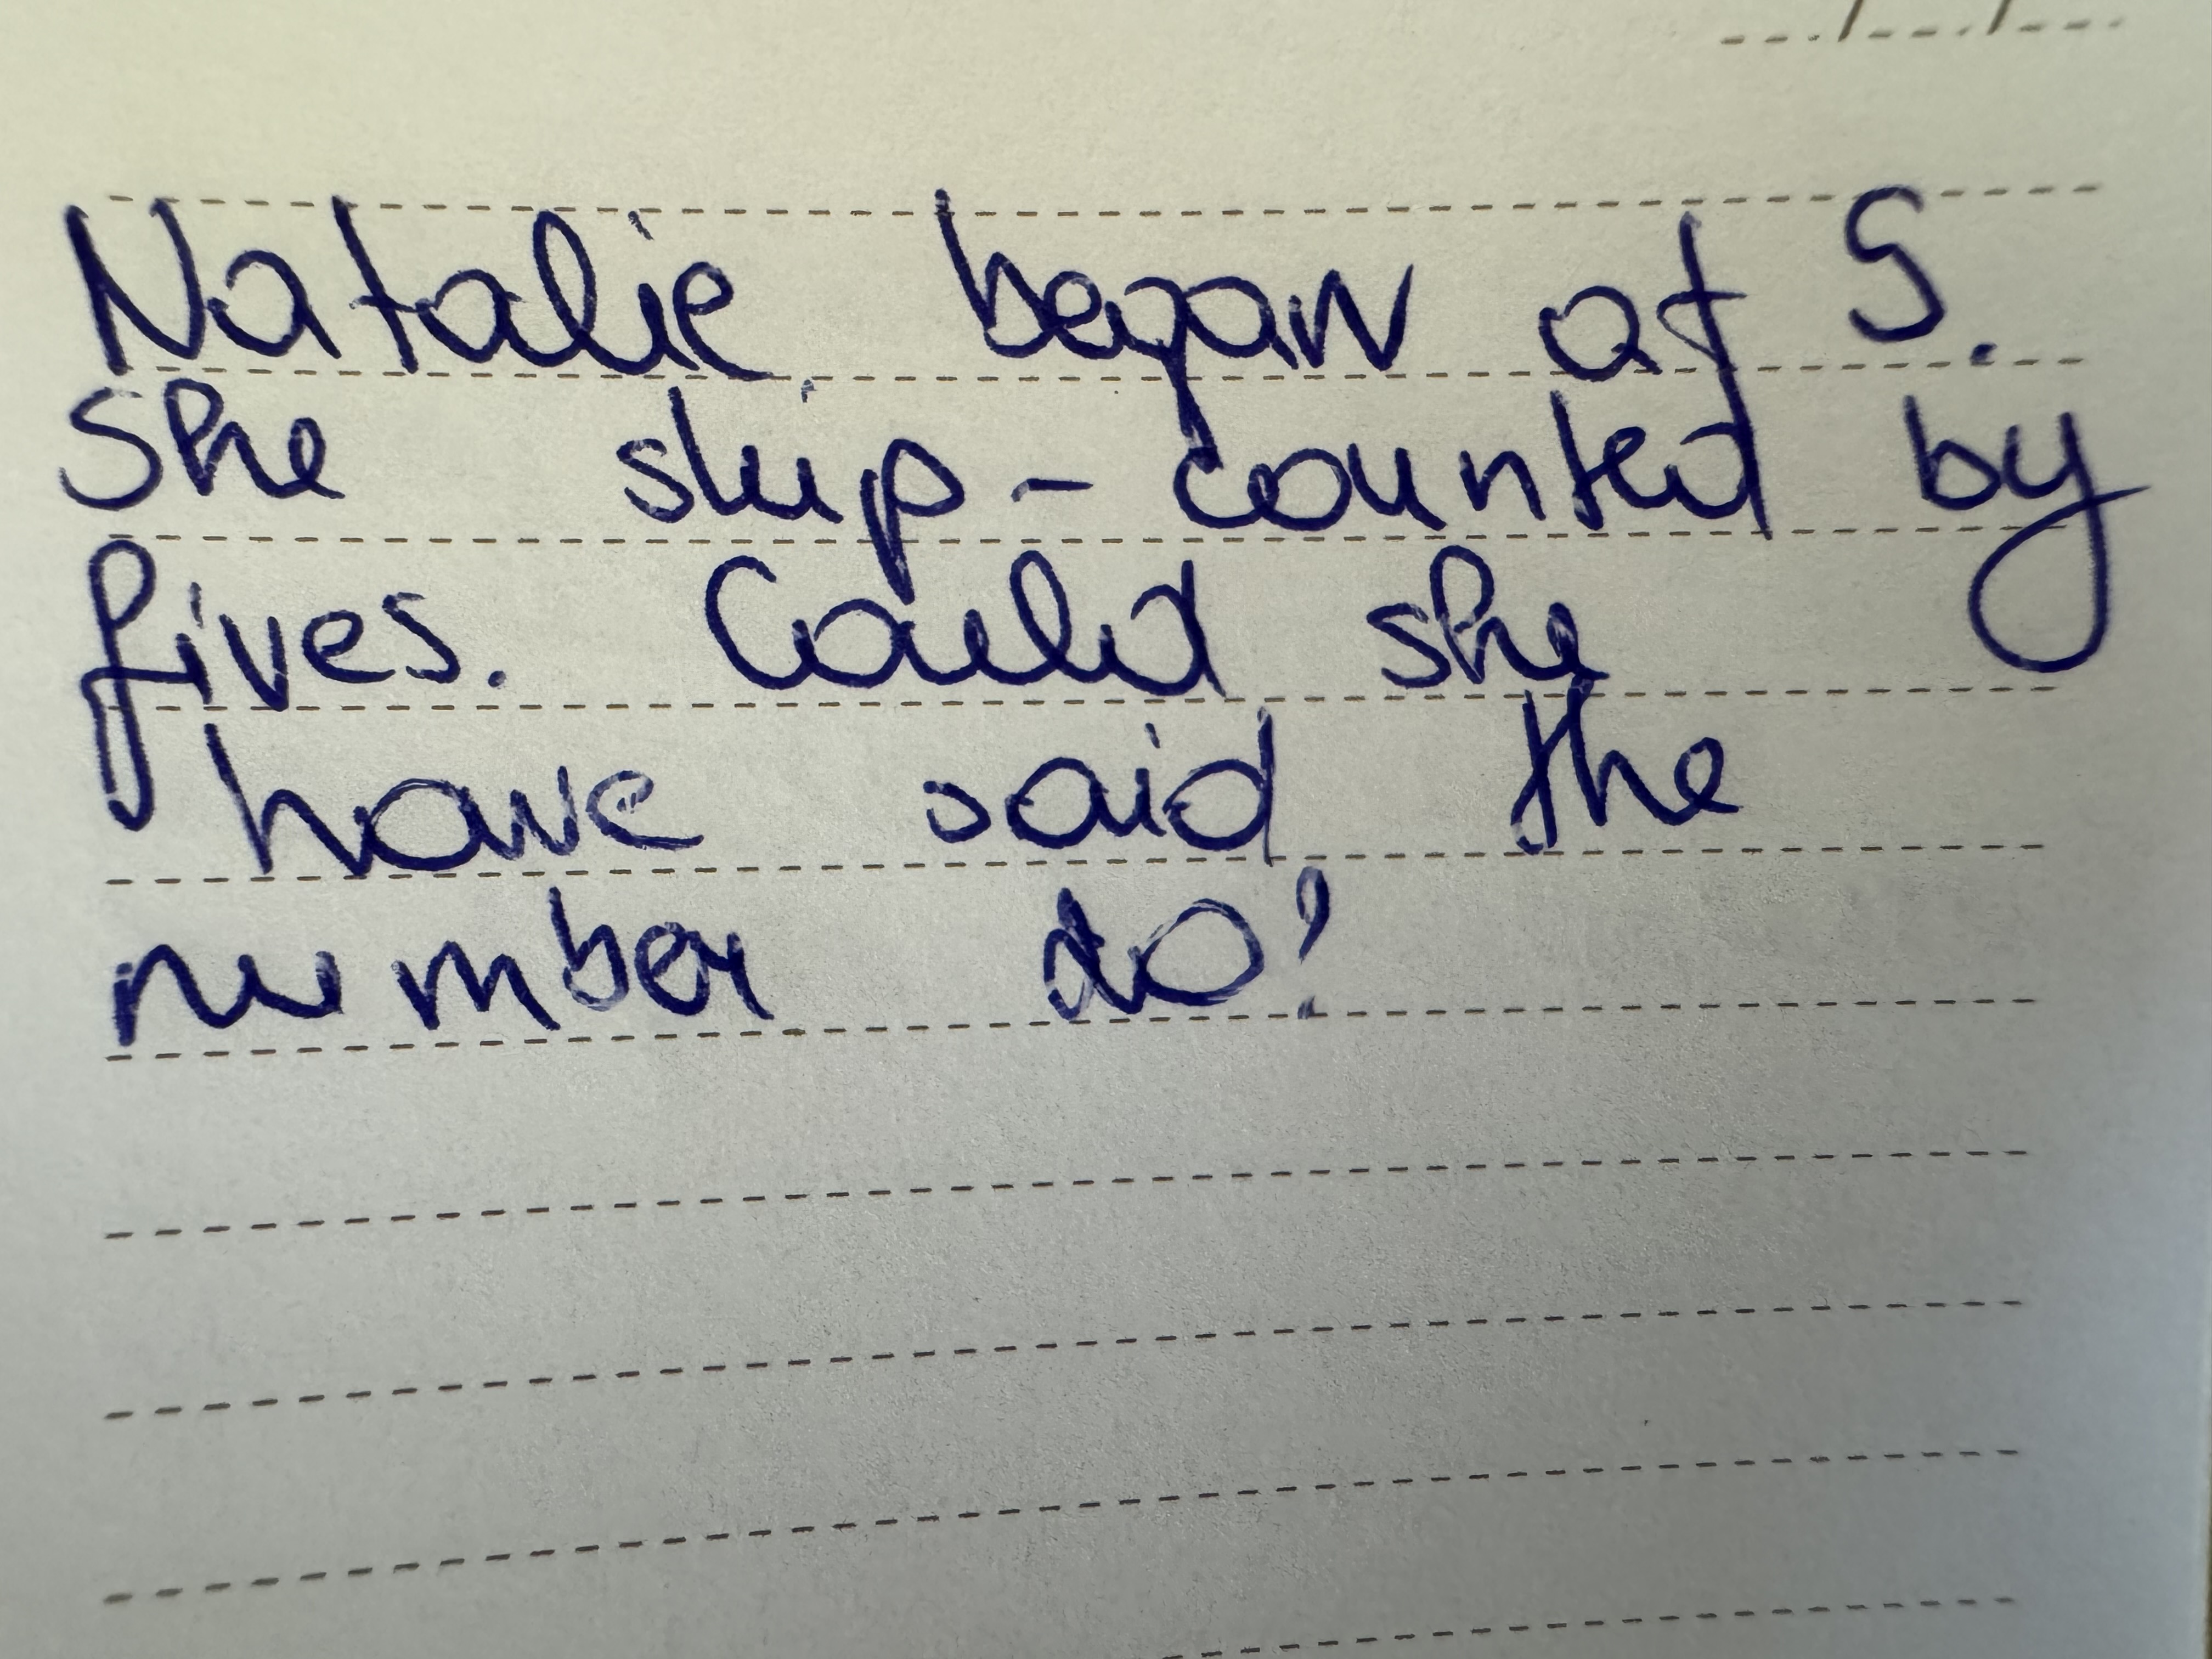 Natalie began at 5.
She skip-counted by
fives. Could she
have said the
number 20?